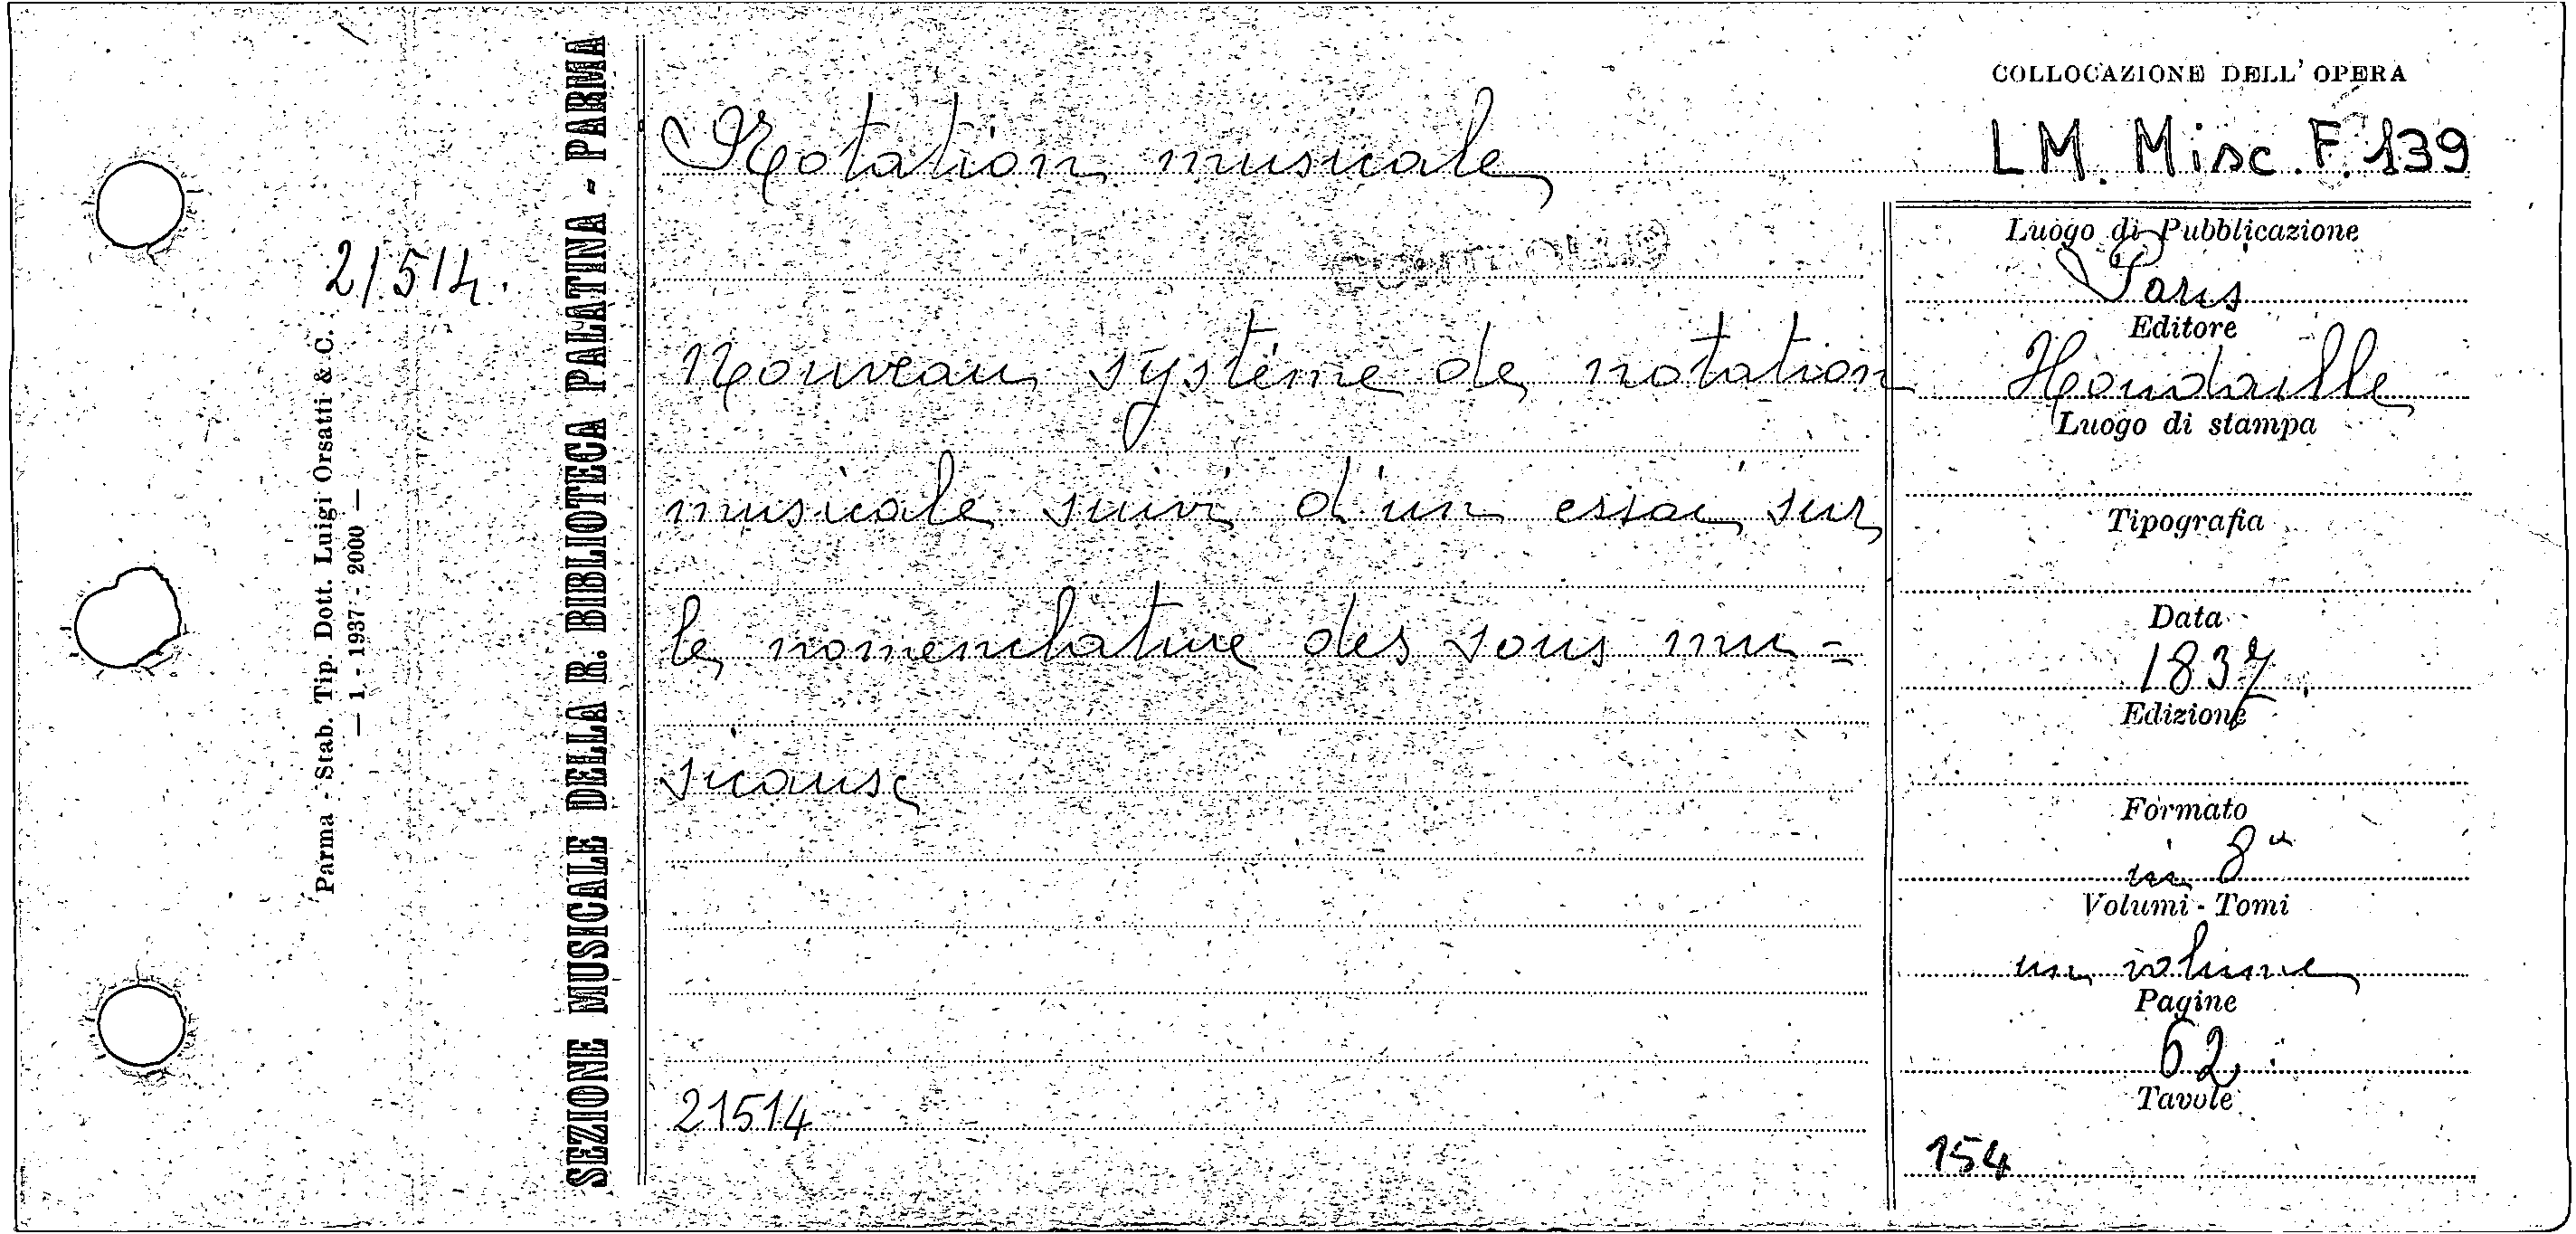 COLLOCAZIONE DELL' OPERA
LM. Misc. F. 139
Notation musicale
Nouveau système de notation
musicale suivi d'un essai sur
le nomenclature des sons mu-
sicause
21514
Luogo di Pubblicazione
Paris
Editore
Houdaille
Luogo di stampa
Tipografia
Data
1837
Edizione
Formato
in 8°
Volumi - Tomi
un volume
Pagine
62
Tavole
154
21514.
Parma - Stab. Tip. Dott. Luigi Orsatti & C.
— 1 - 1937 - 2000 —
SEZIONE MUSICALE DELLA R. BIBLIOTECA PALATINA - PARMA